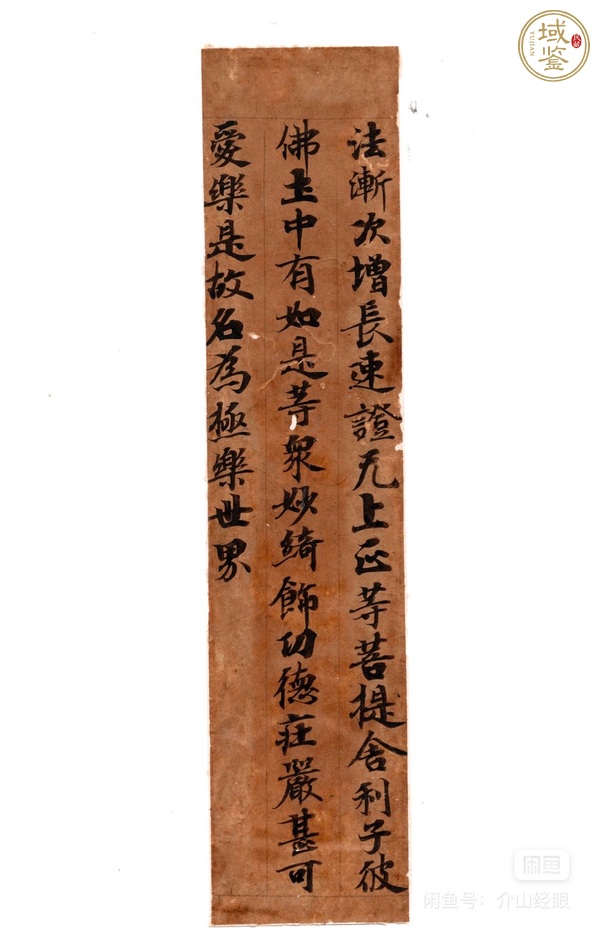 法漸次增長速證无上正等菩提舍利子彼
佛土中有如是等衆妙綺飾功德莊嚴甚可
愛樂是故名為極樂世界
域鉴
YUJIAN
闲鱼
闲鱼号：介山经眼